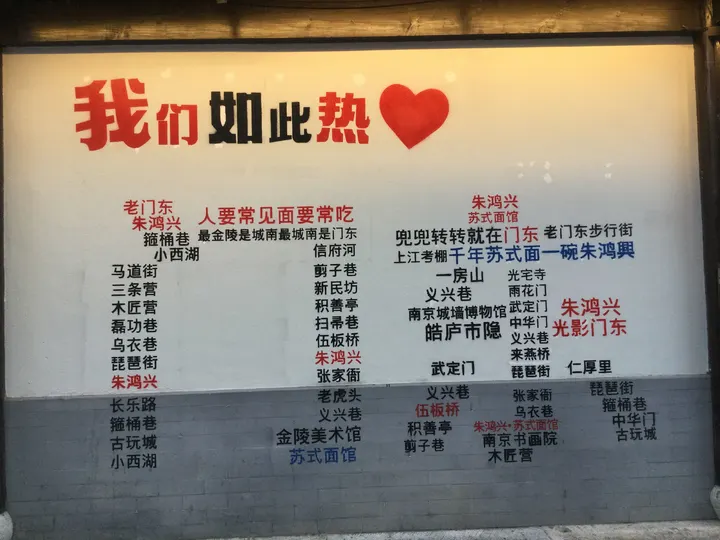 我们如此热
老门东
朱鸿兴
人要常见面要常吃
箍桶巷
最金陵是城南最城南是门东
小西湖
信府河
马道街
剪子巷
三条营
新民坊
木匠营
积善亭
磊功巷
扫帚巷
乌衣巷
伍板桥
琵琶街
朱鸿兴
朱鸿兴
张家衙
长乐路
老虎头
箍桶巷
义兴巷
古玩城
金陵美术馆
小西湖
苏式面馆
朱鸿兴
苏式面馆
兜兜转转就在门东
老门东步行街
上江考棚
千年苏式面一碗朱鸿興
一房山
光宅寺
义兴巷
雨花门
南京城墙博物馆
武定门
朱鸿兴
皓庐市隐
中华门
光影门东
义兴巷
来燕桥
武定门
琵琶街
仁厚里
义兴巷
张家衙
琵琶街
伍板桥
乌衣巷
箍桶巷
积善亭
朱鸿兴·苏式面馆
中华门
剪子巷
南京书画院
古玩城
木匠营